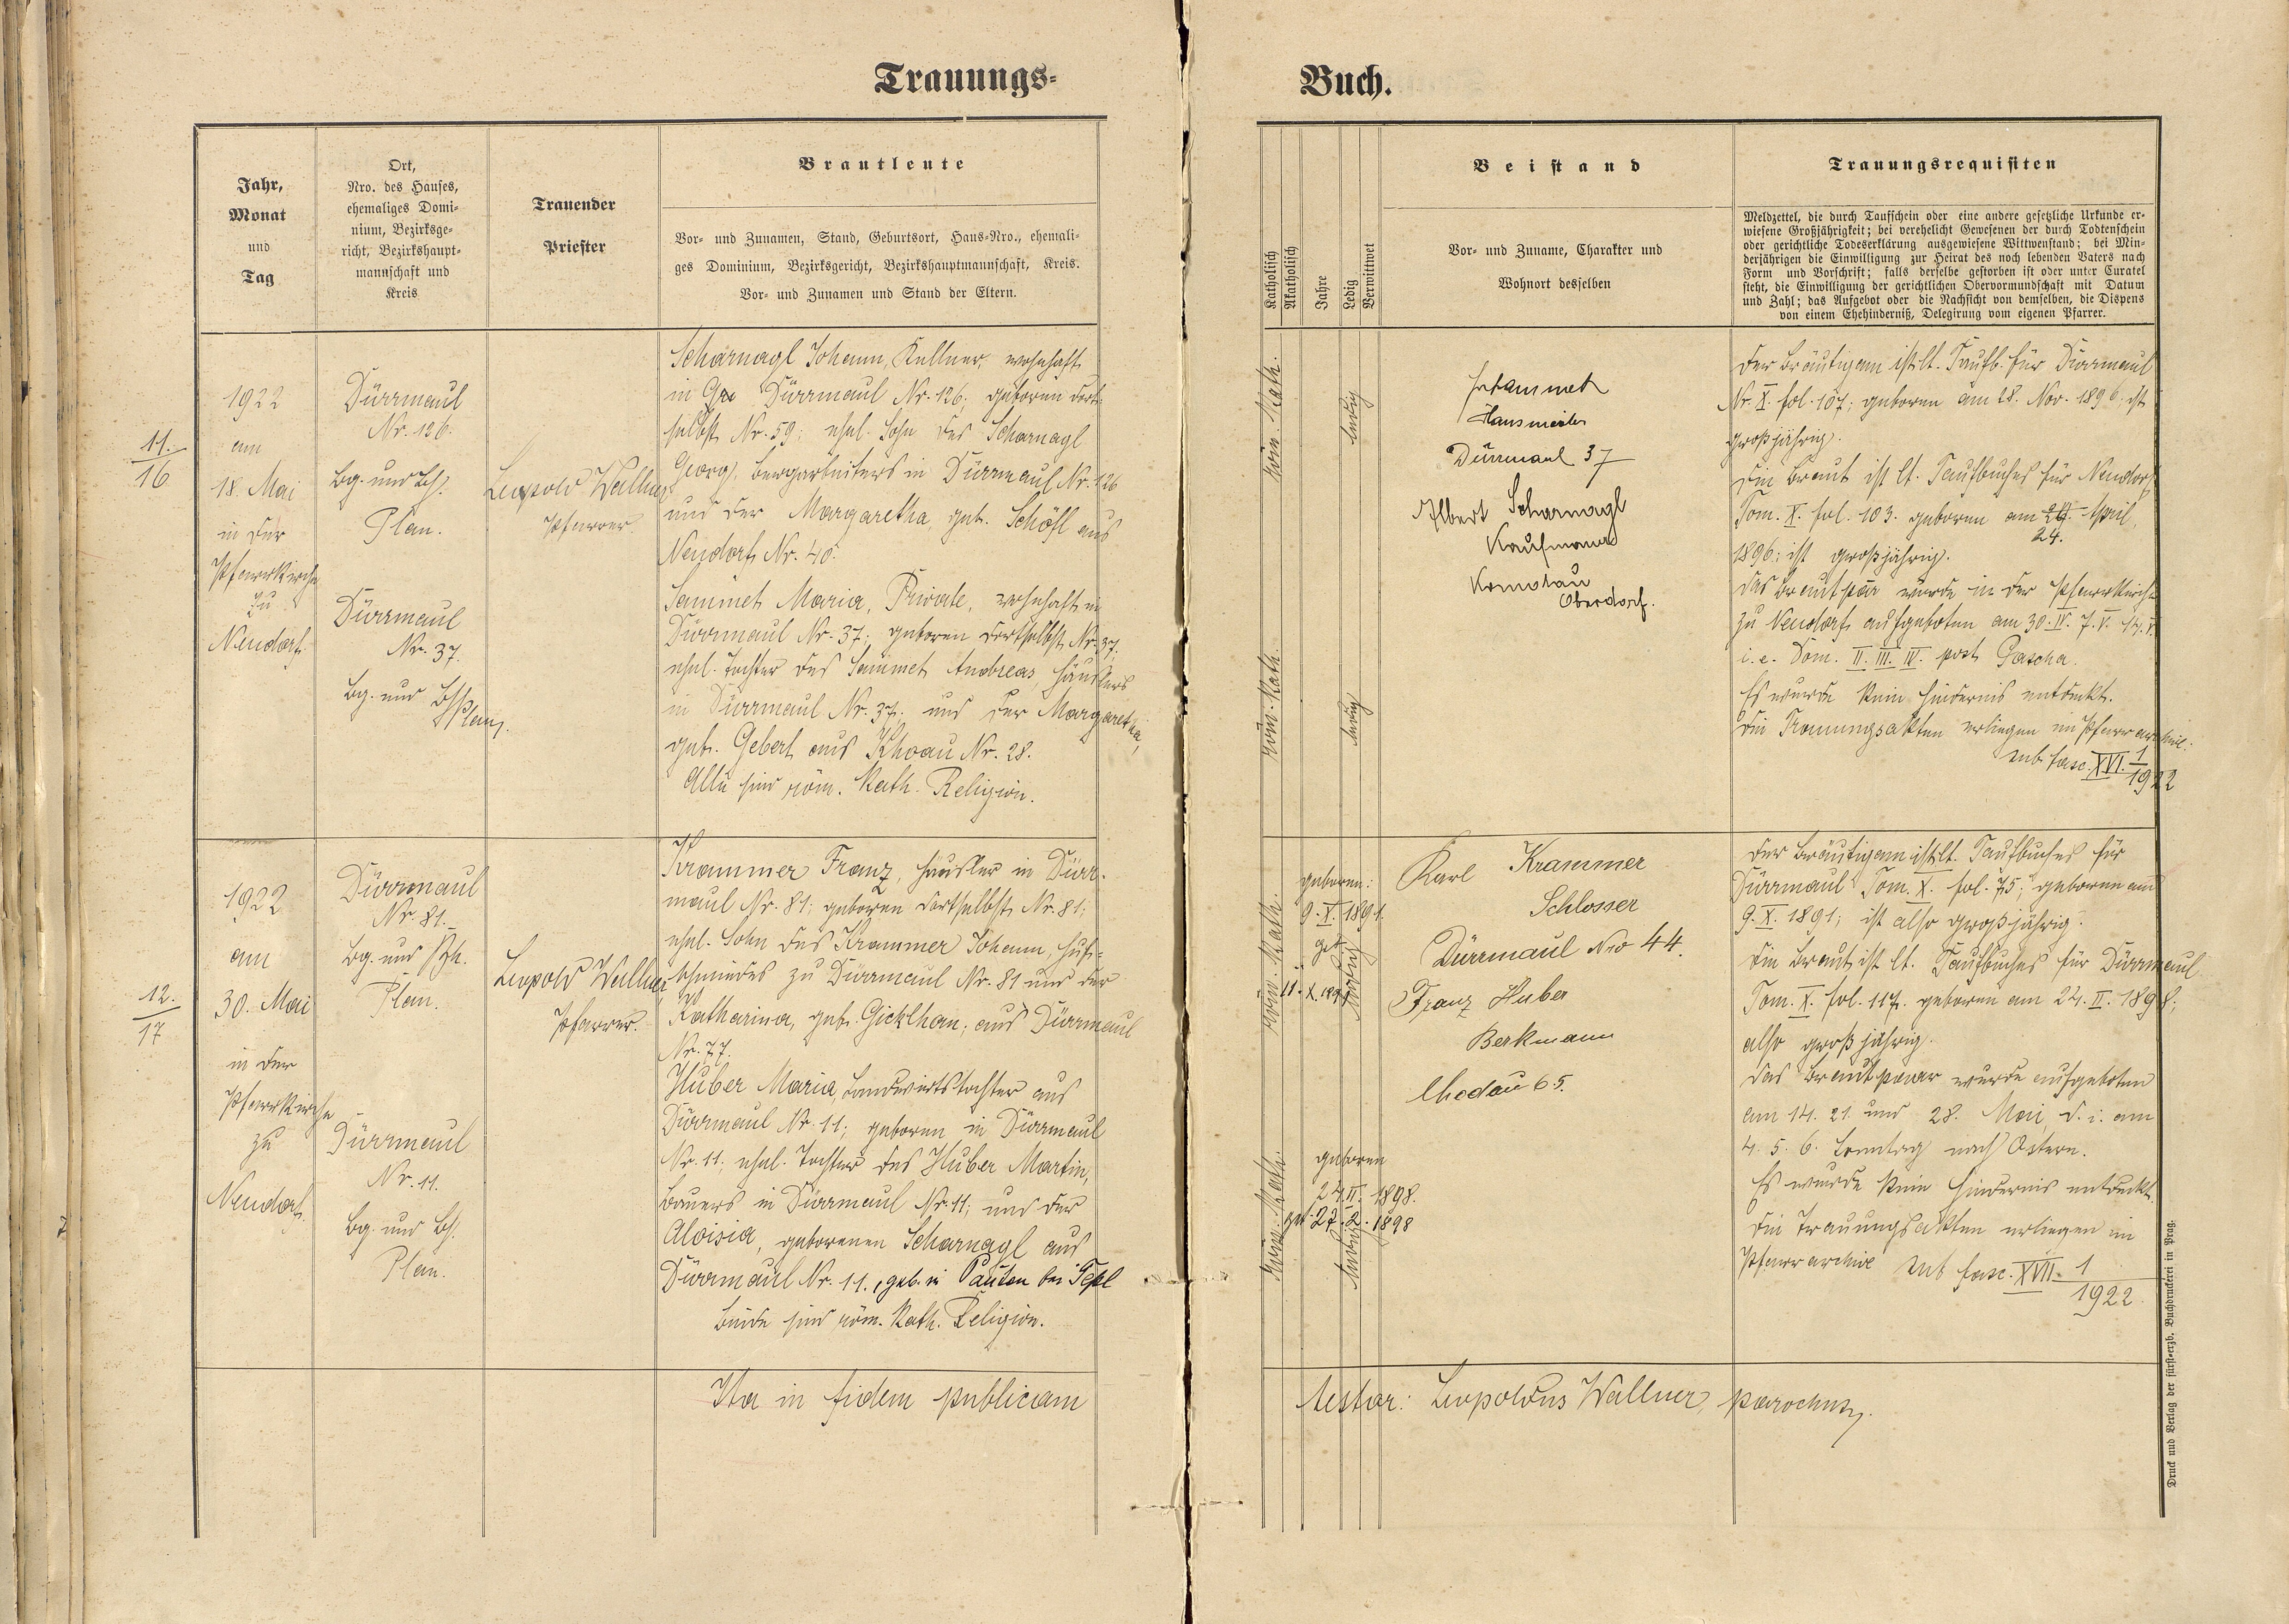 Trauungs-
Buch.
Jahr,
Monat
und
Tag
Ort,
Nro. des Hauses,
ehemaliges Domi-
nium, Bezirksge-
richt, Bezirkshaupt-
mannschaft und
Kreis
Trauender
Priester
Brautleute
Vor- und Zunamen, Stand, Geburtsort, Haus-Nro., ehemali-
ges Dominium, Bezirksgericht, Bezirkshauptmannschaft, Kreis.
Vor- und Zunamen und Stand der Eltern.
Katholisch
Akatholisch
Jahre
Ledig
Verwittwet
Beistand
Vor- und Zuname, Charakter und
Wohnort desselben
Trauungsrequisiten
Meldzettel, die durch Taufschein oder eine andere gesetzliche Urkunde er-
wiesene Großjährigkeit; bei verehelicht Gewesenen der durch Todtenschein
oder gerichtliche Todeserklärung ausgewiesene Wittwenstand; bei Min-
derjährigen die Einwilligung zur Heirat des noch lebenden Vaters nach
Form und Vorschrift; falls derselbe gestorben ist oder unter Curatel
steht, die Einwilligung der gerichtlichen Obervormundschaft mit Datum
und Zahl; das Aufgebot oder die Nachsicht von demselben, die Dispens
von einem Ehehinderniß, Delegirung vom eigenen Pfarrer.
11.
16
1922
am
18. Mai
in der
Pfarrkirche
zu
Neudorf.
Dürrmaul
Nr. 126.
Bg. und Bh.
Plan.
Dürrmaul
Nr. 37.
Bg. und Bh
Plan.
Leopold Wallner
Pfarrer
Scharnagl Johann, Kellner, wohnhaft
in Dürrmaul Nr. 126. geboren dort-
selbst Nr. 59; ehel. Sohn des Scharnagl
Georg, Bergarbeiters in Dürrmaul Nr. 126
und der Margaretha, geb. Schöfl aus
Neudorf Nr. 40.
Sammet Maria, Private, wohnhaft in
Dürrmaul Nr. 37; geboren dortselbst Nr. 37.
ehel. Tochter des Sammet Andreas, Häuslers
in Dürrmaul Nr. 37. und der Margaretha,
geb. Gebert aus Khoau Nr. 28.
Alle sind röm. kath. Religion.
röm. kath.
ledig
röm. kath.
ledig
Hausmeister
Dürrmaul 37
Albert Scharnagl
Kaufmann
Komotau
Oberdorf.
Der Bräutigam ist lt. Taufb. für Dürrmaul
Nr. X. fol. 107; geboren am 28. Nov. 1896. ist
großjährig.
Die Braut ist lt. Taufbuches für Neudorf
Tom. X. fol. 103. geboren am April,
24.
1896; ist großjährig.
Das Brautpaar wurde in der Pfarrkirche
zu Neudorf aufgeboten am 30. IV. 7. V. 14. V.
i. e. Dom. II. III. IV. post Pascha.
Es wurde kein Hindernis entdeckt.
Die Trauungsakten erliegen im Pfarrarchive:
sub fasc. XVI. 1
1922
12.
17
1922
am
30. Mai
in der
Pfarrkirche
zu
Neudorf.
Dürrmaul
Nr. 81.
Bg. und Bh.
Plan.
Dürrmaul
Nr. 11.
Bg. und Bh.
Plan.
Leopold Wallner
Pfarrer.
Krammer Franz, Häusler in Dürr-
maul Nr. 81; geboren dortselbst Nr. 81;
ehel. Sohn des Krammer Johann, Huf-
schmiedes zu Dürrmaul Nr. 81 und der
Katharina, geb. Gicklhan; aus Dürrmaul
Nr. 77.
Huber Maria, Landwirtstochter aus
Dürrmaul Nr. 11; geboren in Dürrmaul
Nr. 11; ehel. Tochter des Huber Martin,
Bauers in Dürrmaul Nr. 11; und der
Aloisia, geborenen Scharnagl aus
Dürrmaul Nr. 11., geb. in Pauten bei Tepl
Beide sind röm. kath. Religion.
röm. kath.
geboren:
9. X. 1891.
get
11. X. 1891
ledig
röm. kath.
geboren
24. II. 1898.
get. 27. 2. 1898
ledig
Karl Krammer
Schlosser
Dürrmaul Nro 44.
Franz Huber
Berkmann
Chodau 65.
Der Bräutigam ist lt. Taufbuches für
Dürrmaul Tom. X. fol. 75; geboren am
9. X. 1891; ist also großjährig.
Die Braut ist lt. Taufbuches für Dürrmaul
Tom. X. fol. 117. geboren am 24. II. 1898;
also großjährig.
Das Brautpaar wurde aufgeboten
am 14. 21. und 28. Mai, d. i. am
4. 5. 6. Sonntag nach Ostern.
Es wurde kein Hindernis entdeckt.
Die Trauungsakten erliegen im
Pfarrarchive sub fasc. XVII. 1
1922.
Ita in fidem publicam
testor: Leopoldus Wallner, parochus.
Druck und Verlag der fürst-erzb. Buchdruckerei in Prag.